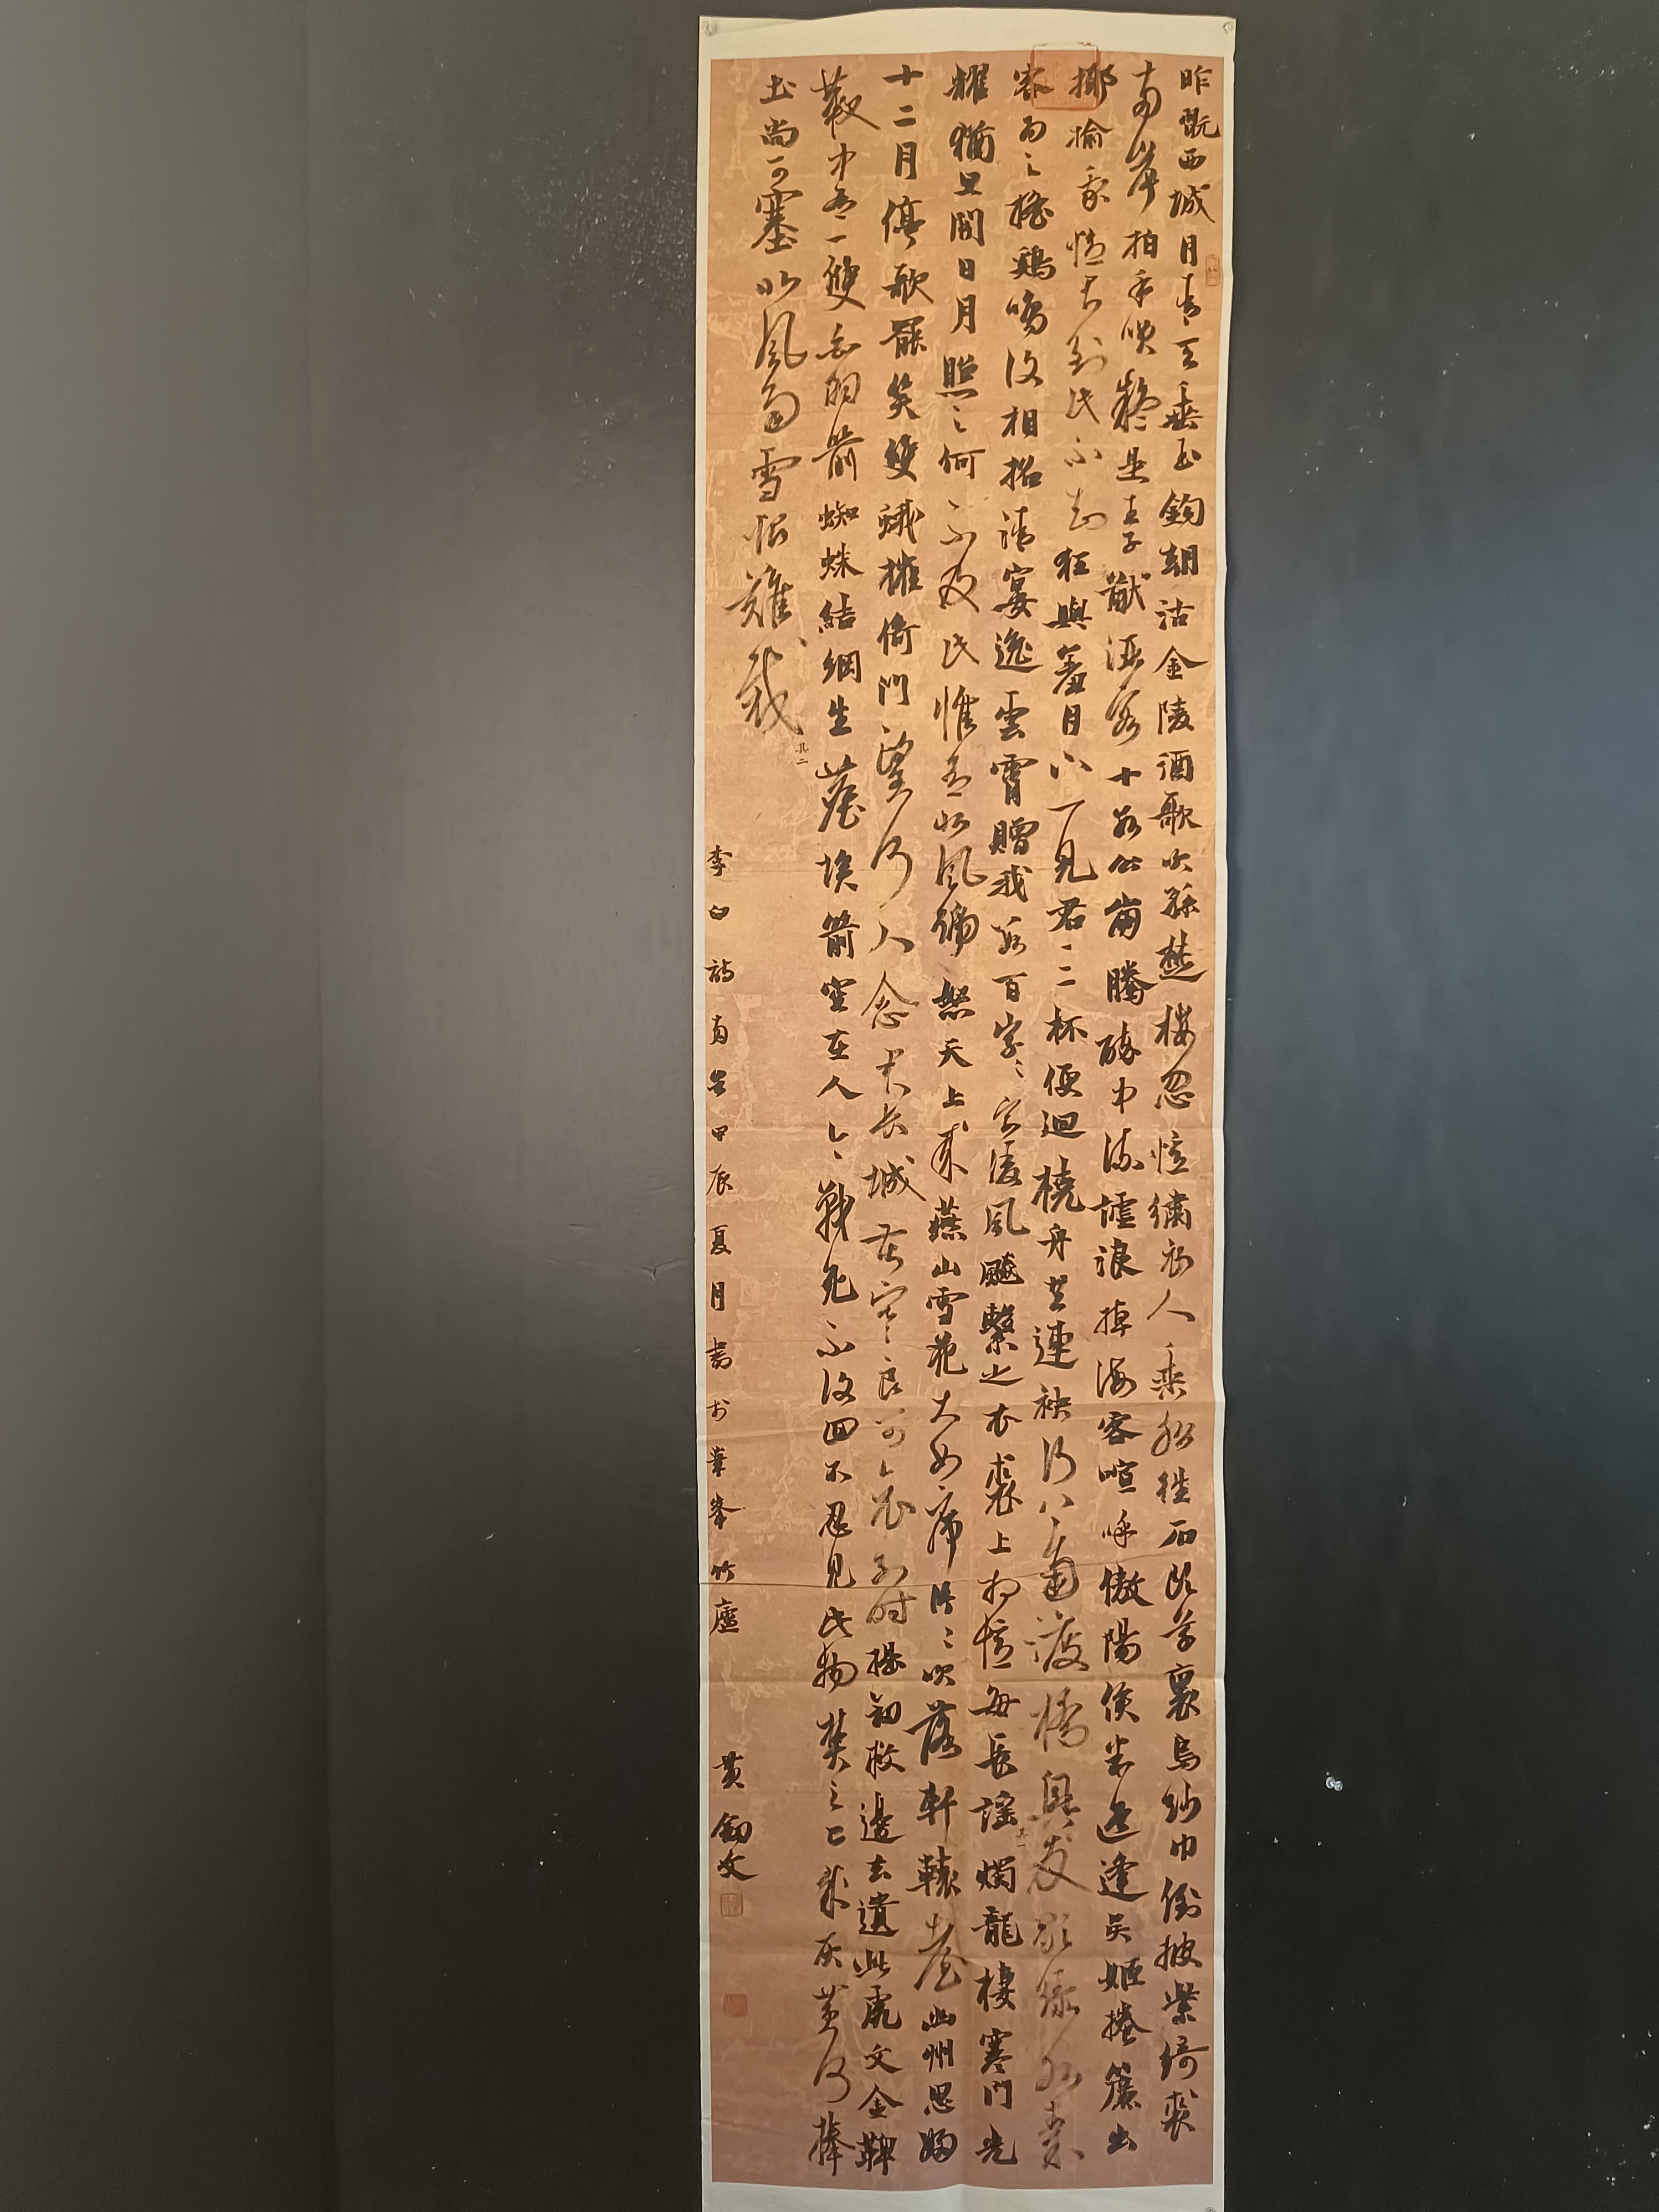 昨翫西城月青天垂玉鉤朝沽金陵酒歌吹孫楚樓忽憶繡衣人乘船往石頭草裹烏紗巾倒披紫綺裘
兩岸拍手笑疑是王子猷酒客十數公崩騰醉中流謔浪掉海客喧呼傲陽侯半道逢吳姬捲簾出
揶揄我憶君到此不知狂與羞月下一見君三杯便迴橈舟共連袂行上南渡橋興發歌綠水秦
客為之搖鷄鳴復相招清宴逸雲霄贈我數百字字凌風飆繫之衣裘上相憶每長謠其一燭龍棲寒門光
耀猶旦開日月照之何不及此惟有北風號怒天上來燕山雪花大如席片片吹落軒轅臺幽州思婦
十二月停歌罷笑雙蛾摧倚門望行人念君長城苦寒良可哀別時提劍救邊去遺此虎文金鞞
靫中有一雙白羽箭蜘蛛結網生塵埃箭空在人今戰死不復回不忍見此物焚之已成灰黃河捧
土尚可塞北風雨雪恨難裁其二
李白詩兩首甲辰夏月書於峯竹廬 黃劍文